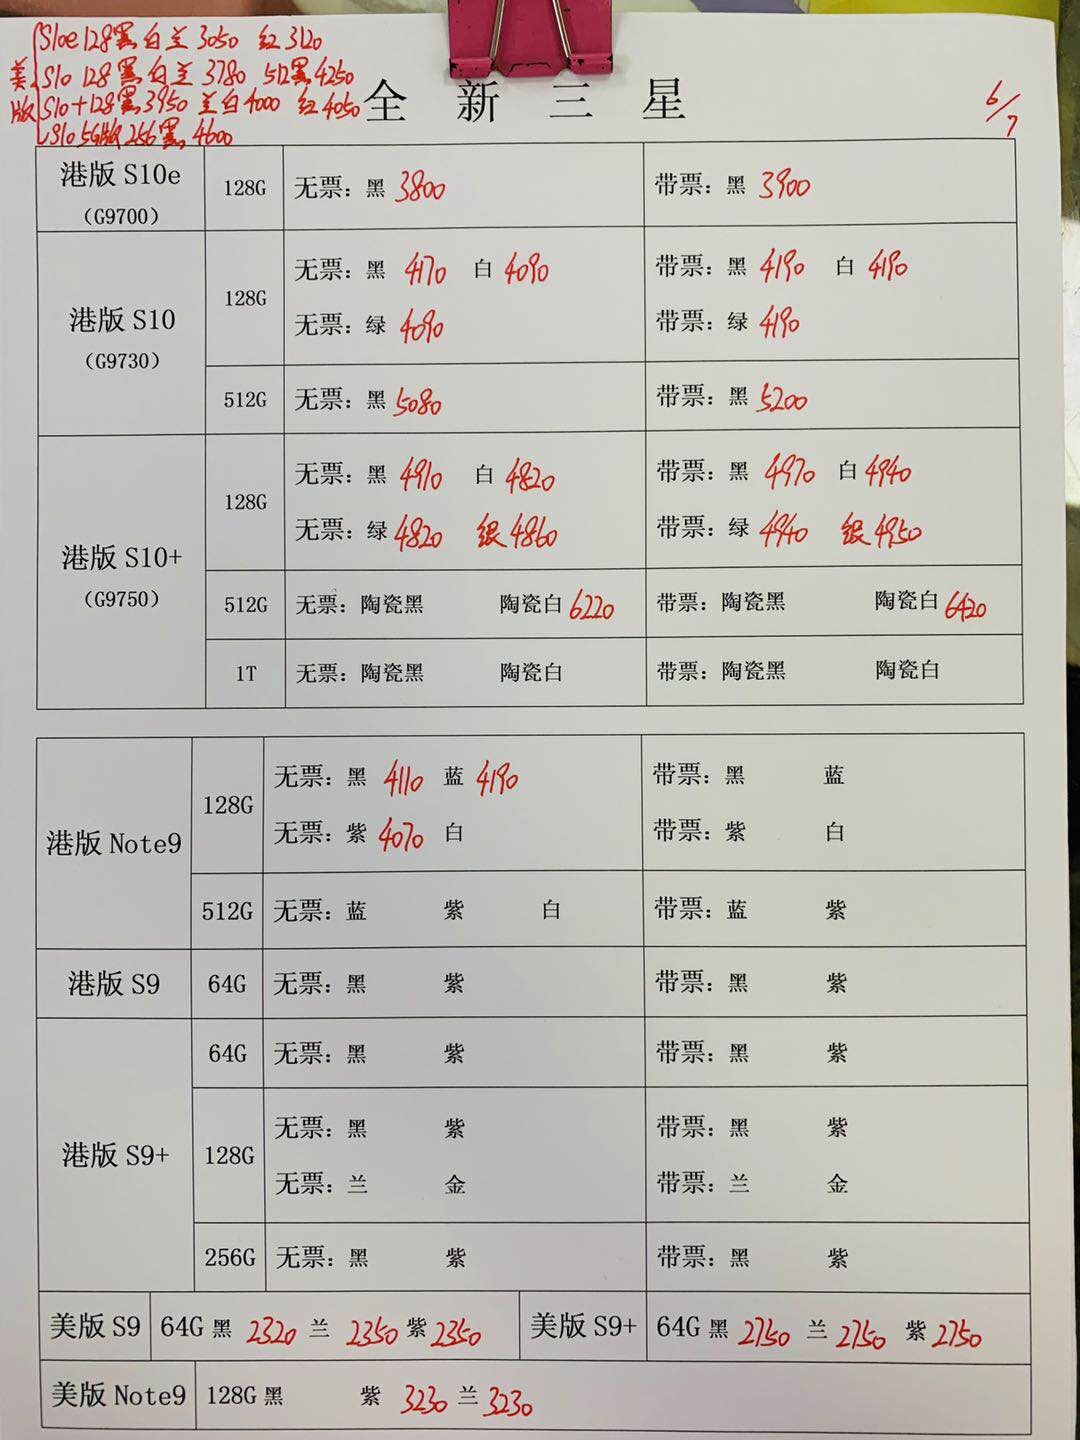 美版
S10e 128黑白兰3050 红3120
S10 128黑白兰3780 512黑4250
S10+128黑3950 兰白4000 红4050
S10 5G版256黑4600
全新三星
6/7
港版 S10e
(G9700)
128G
无票: 黑 3800
带票: 黑 3900
港版 S10
(G9730)
128G
无票: 黑 4170 白 4090
带票: 黑 4190 白 4190
无票: 绿 4090
带票: 绿 4190
512G
无票: 黑 5080
带票: 黑 5200
港版 S10+
(G9750)
128G
无票: 黑 4910 白 4820
带票: 黑 4970 白 4940
无票: 绿 4820 银 4860
带票: 绿 4940 银 4950
512G
无票: 陶瓷黑 陶瓷白 6220
带票: 陶瓷黑 陶瓷白 6420
1T
无票: 陶瓷黑 陶瓷白
带票: 陶瓷黑 陶瓷白
港版 Note9
128G
无票: 黑 4110 蓝 4190
带票: 黑 蓝
无票: 紫 4070 白
带票: 紫 白
512G
无票: 蓝 紫 白
带票: 蓝 紫
港版 S9
64G
无票: 黑 紫
带票: 黑 紫
港版 S9+
64G
无票: 黑 紫
带票: 黑 紫
128G
无票: 黑 紫
带票: 黑 紫
无票: 兰 金
带票: 兰 金
256G
无票: 黑 紫
带票: 黑 紫
美版 S9
64G 黑 2320 兰 2350 紫 2350
美版 S9+
64G 黑 2750 兰 2750 紫 2750
美版 Note9
128G 黑 紫 3230 兰 3230